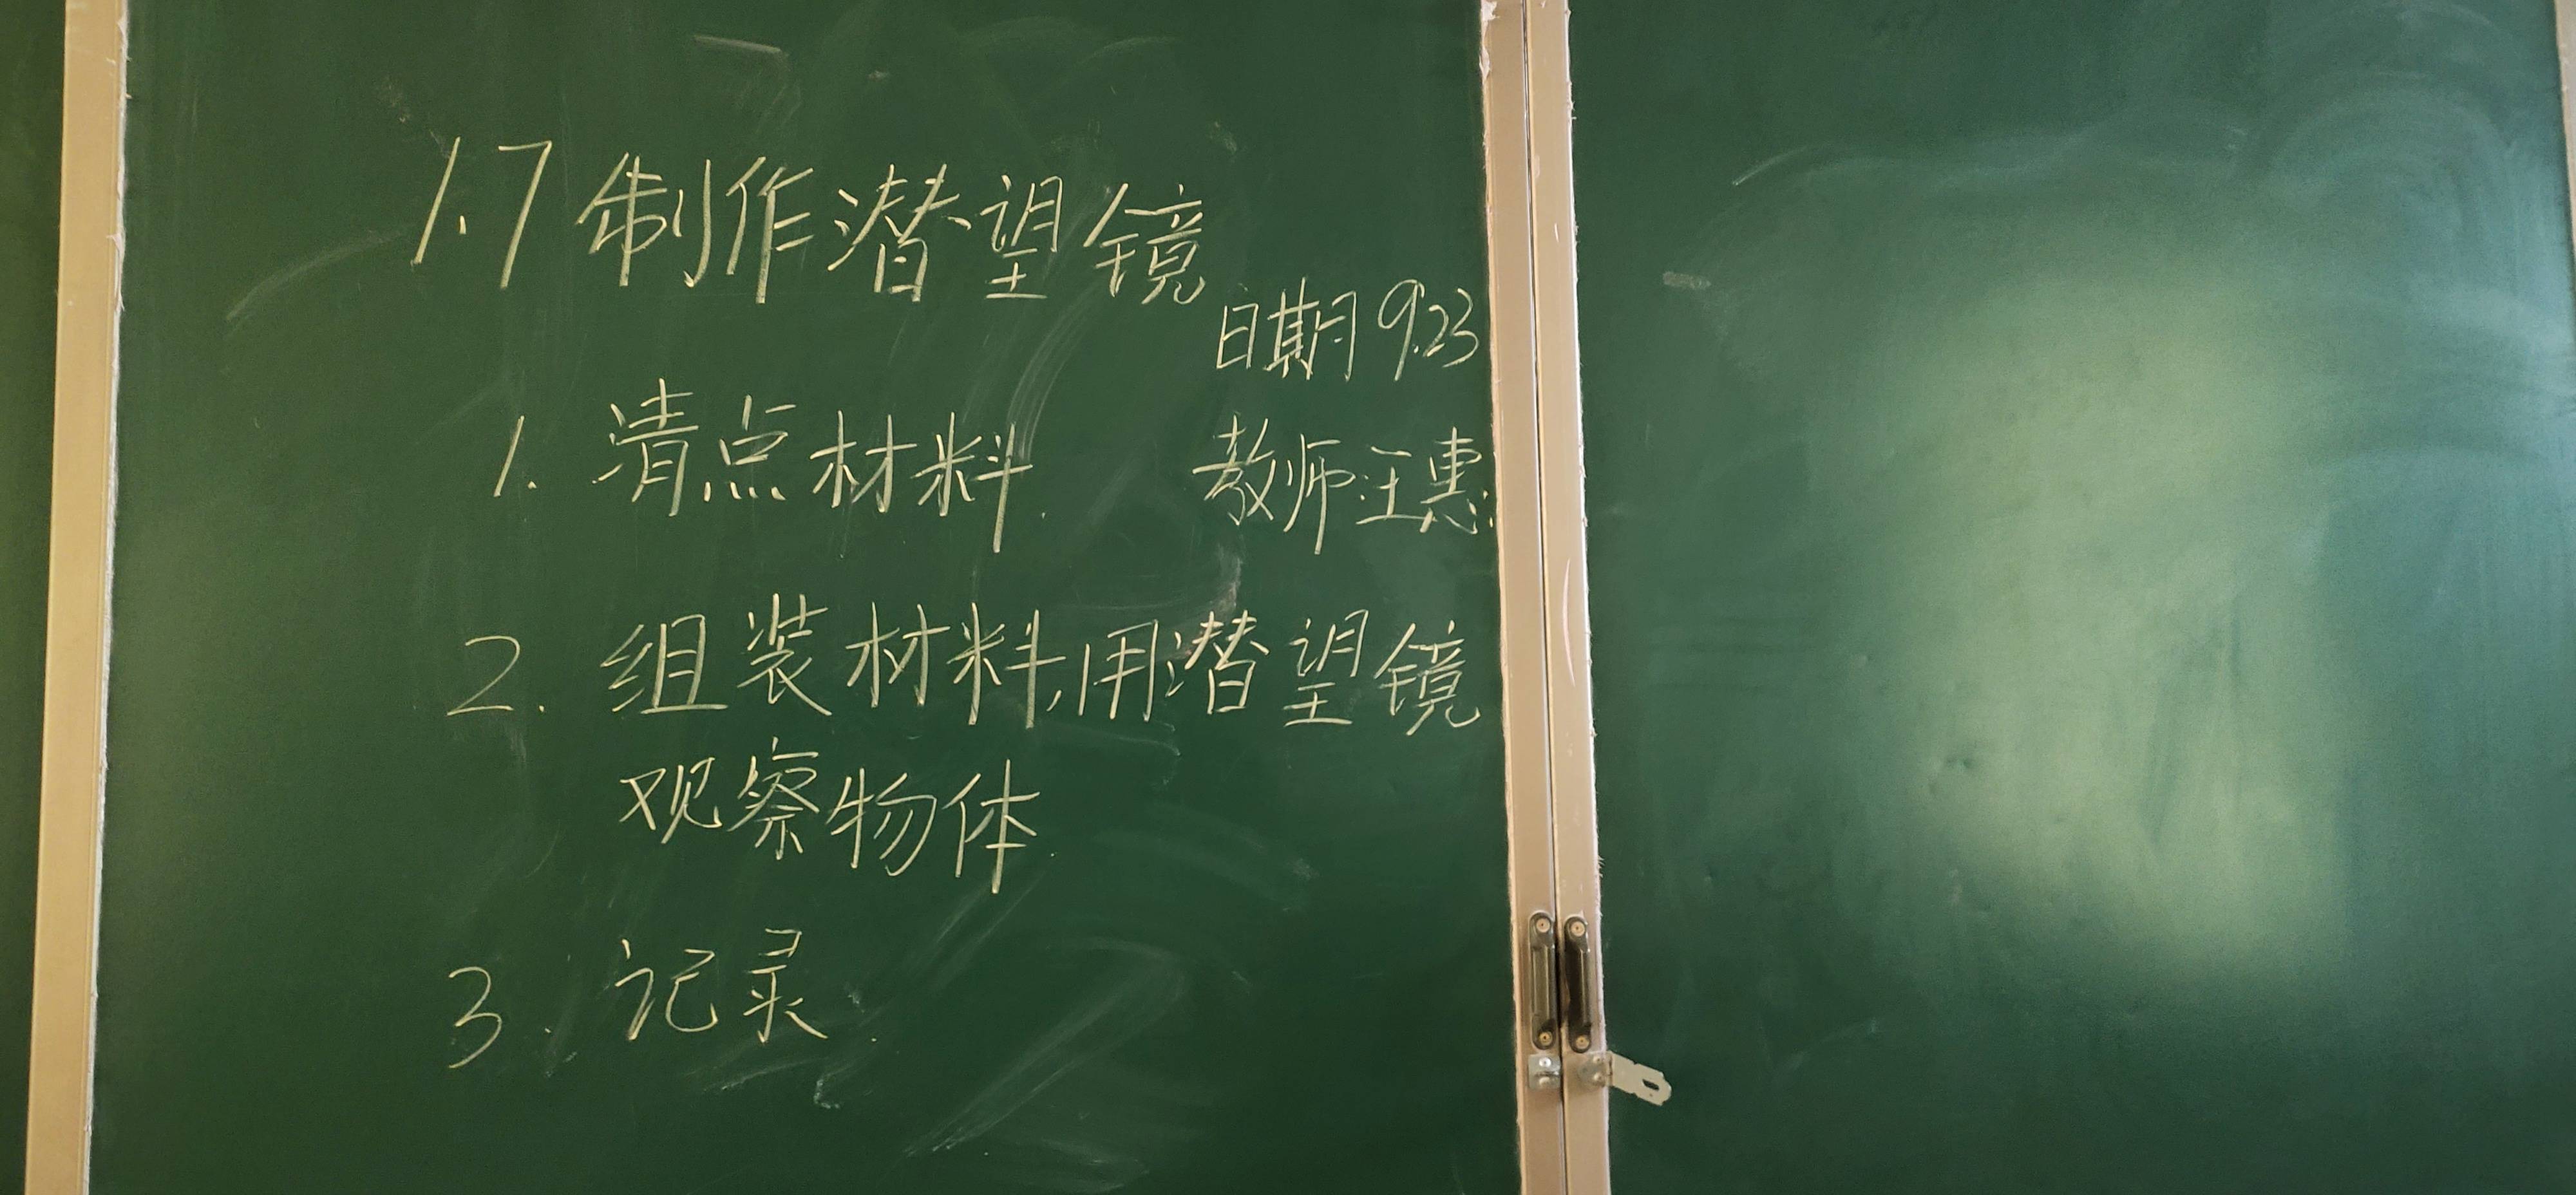 1.7 制作潜望镜
日期 9.23
1. 清点材料.
教师汪惠
2. 组装材料,用潜望镜
观察物体.
3. 记录.